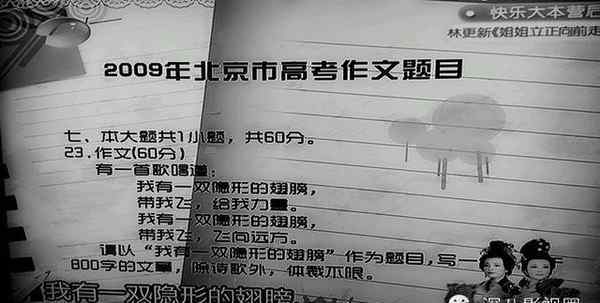 快乐大本营后
林更新《姐姐立正向前走
2009年北京市高考作文题目
七、本大题共1小题，共60分。
23.作文(60分)
有一首歌唱道：
我有一双隐形的翅膀，
带我飞，给我力量。
我有一双隐形的翅膀，
带我飞，飞向远方。
请以“我有一双隐形的翅膀”作为题目，写一
800字的文章，除诗歌外，体裁不限。
我有一双隐形的翅膀